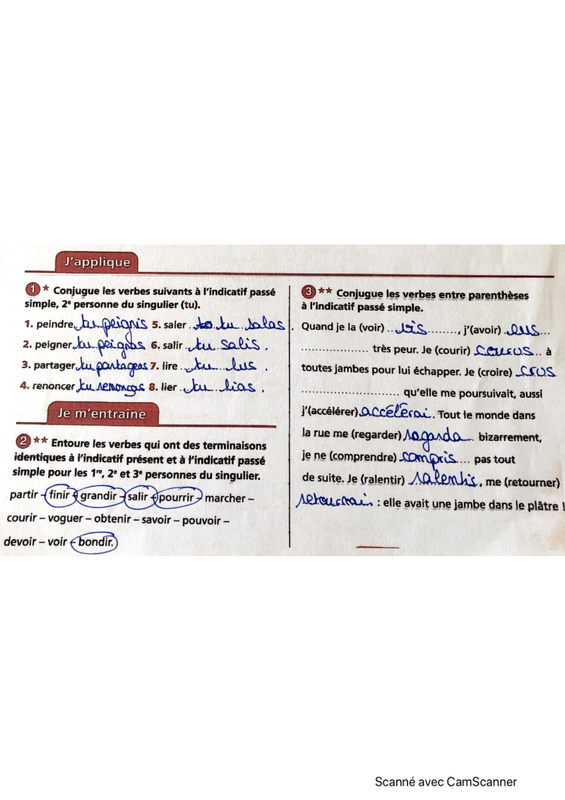 J'applique
1 * Conjugue les verbes suivants à l'indicatif passé
simple, 2e personne du singulier (tu).
1. peindre tu peignis 5. saler to tu salas.
2. peigner tu peignas 6. salir tu salis.
3. partager tu partageas 7. lire tu lus.
4. renoncer tu renonças 8. lier tu lias.
Je m'entraîne
2 ** Entoure les verbes qui ont des terminaisons
identiques à l'indicatif présent et à l'indicatif passé
simple pour les 1re, 2e et 3e personnes du singulier.
partir – finir – grandir – salir – pourrir – marcher –
courir – voguer – obtenir – savoir – pouvoir –
devoir – voir – bondir.
3 ** Conjugue les verbes entre parenthèses
à l'indicatif passé simple.
Quand je la (voir) vis, j'(avoir) eus
très peur. Je (courir) courus à
toutes jambes pour lui échapper. Je (croire) crus
qu'elle me poursuivait, aussi
j'(accélérer) accélérai. Tout le monde dans
la rue me (regarder) regarda bizarrement,
je ne (comprendre) compris pas tout
de suite. Je (ralentir) ralentis, me (retourner)
retournais : elle avait une jambe dans le plâtre !
Scanné avec CamScanner